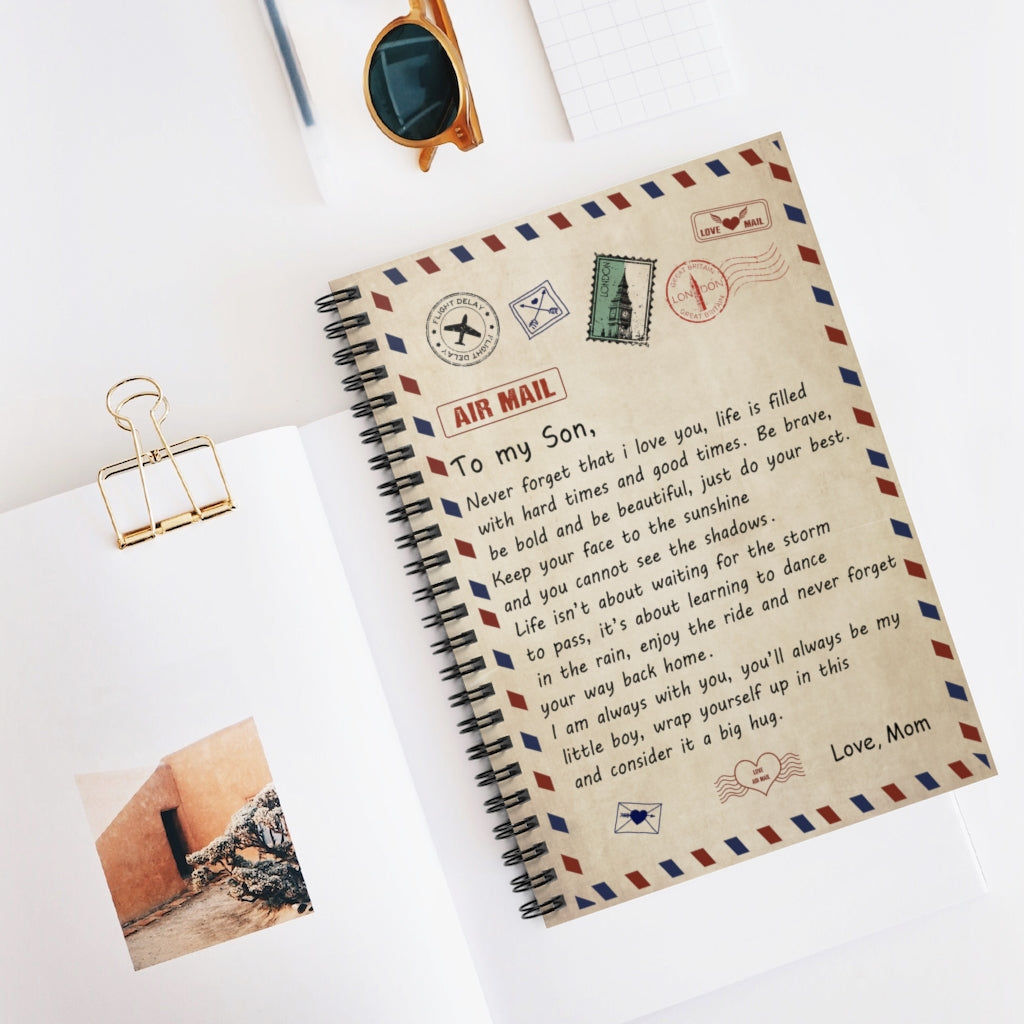 LOVE MAIL
FLIGHT DELAY
FLIGHT DELAY
LONDON
GREAT BRITAIN
LONDON
GREAT BRITAIN
AIR MAIL
To my Son,
Never forget that i love you, life is filled
with hard times and good times. Be brave,
be bold and be beautiful, just do your best.
Keep your face to the sunshine
and you cannot see the shadows.
Life isn't about waiting for the storm
to pass, it's about learning to dance
in the rain, enjoy the ride and never forget
your way back home.
I am always with you, you'll always be my
little boy, wrap yourself up in this
and consider it a big hug.
Love, Mom
LOVE
AIR MAIL